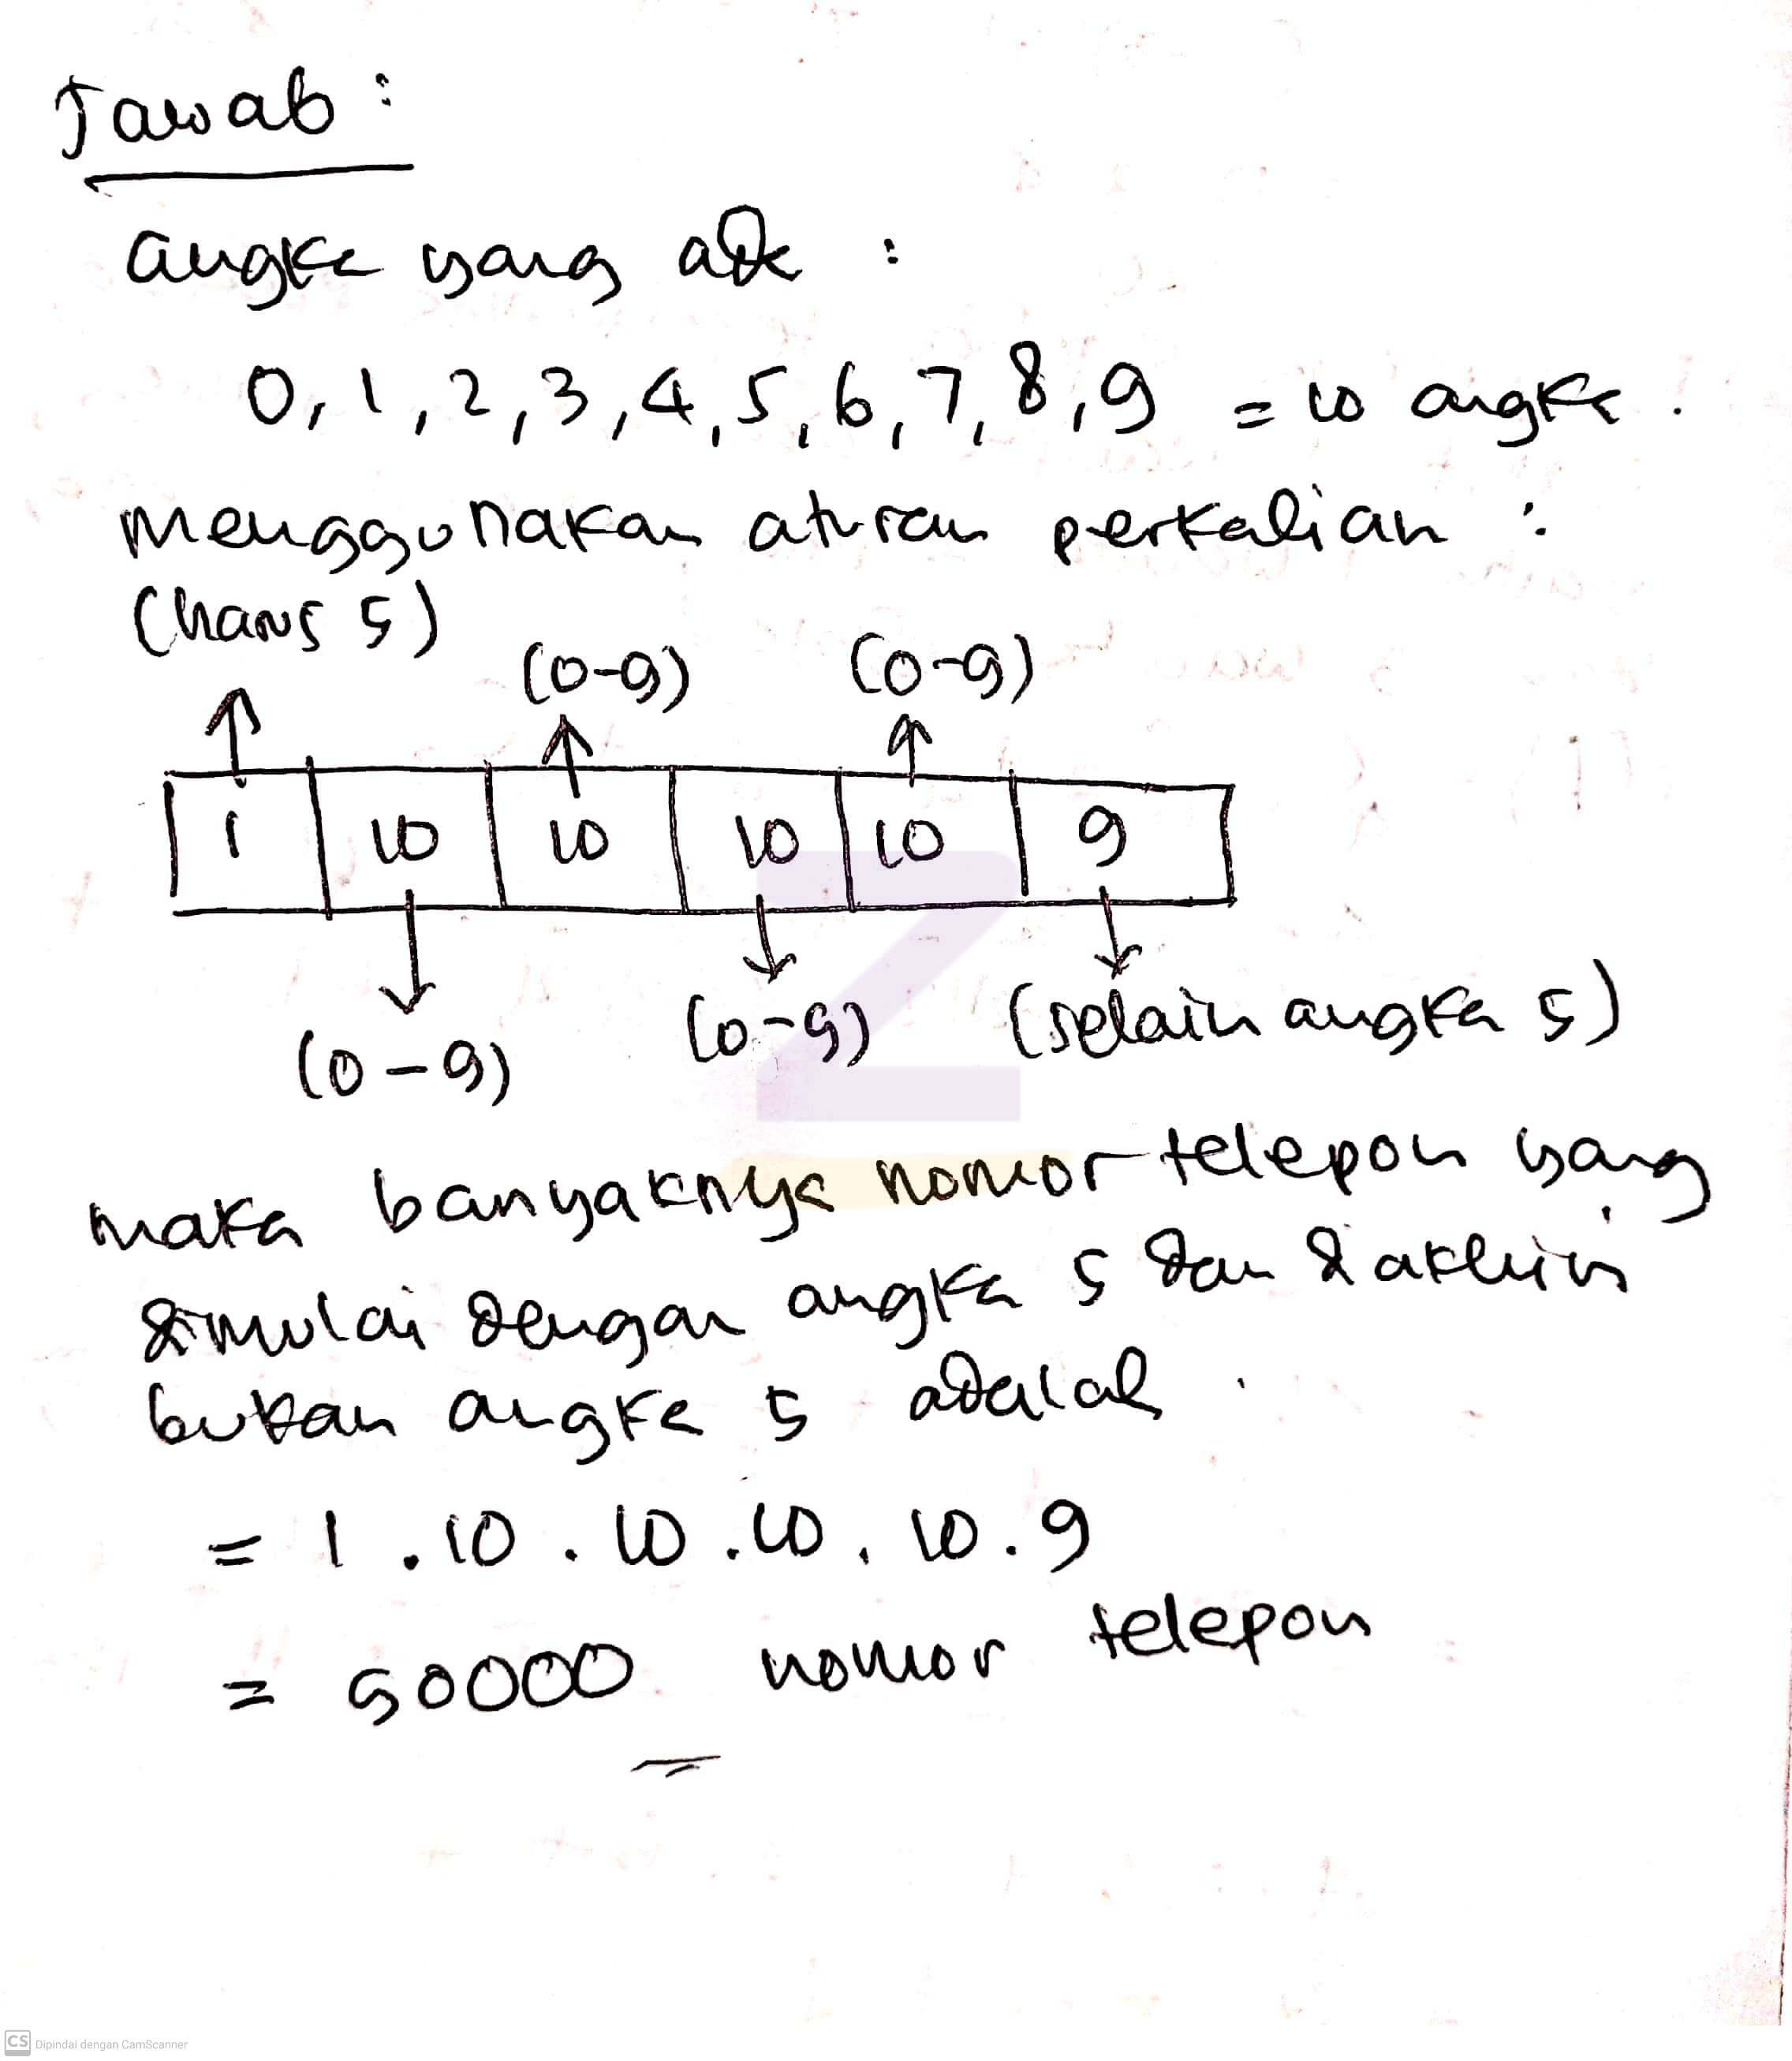 Jawab :
angka yang ada :
0, 1, 2, 3, 4, 5, 6, 7, 8, 9 = 10 angka.
Menggunakan aturan perkalian :
(harus 5)
(0-9) (0-9)
1 10 10 10 10 9
(0-9) (0-9) (selain angka 5)
maka banyaknya nomor telepon yang
dimulai dengan angka 5 dan diakhiri
bukan angka 5 adalah :
= 1 . 10 . 10 . 10 . 10 . 9
= 90000 nomor telepon
CS Dipindai dengan CamScanner